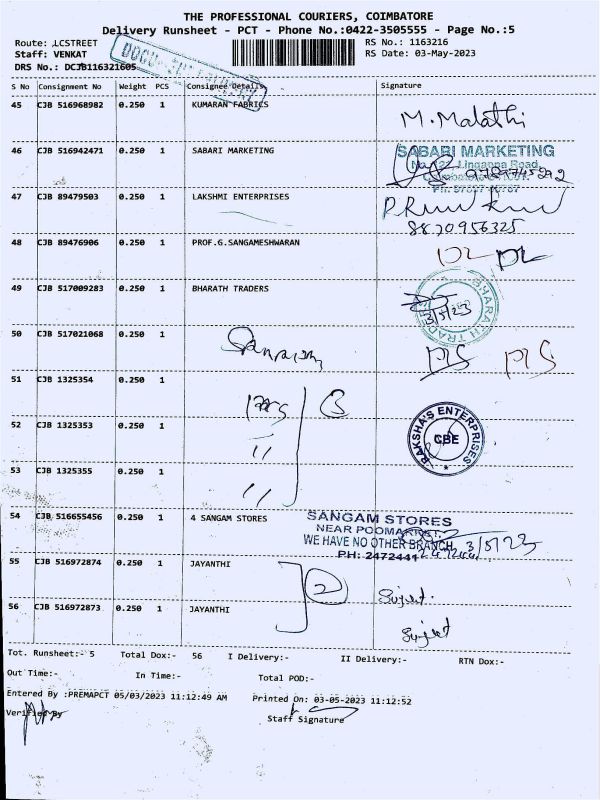 THE PROFESSIONAL COURIERS, COIMBATORE
Delivery Runsheet - PCT - Phone No.:0422-3505555 - Page No.:5
Route: .LCSTREET
RS No.: 1163216
Staff: VENKAT
RS Date: 03-May-2023
DRS No.: DCJB116321605
S No Consignment No Weight PCS Consignee Details Signature
45 CJB 516968982 0.250 1 KUMARAN FABRICS
M. Malathi
46 CJB 516942471 0.250 1 SABARI MARKETING
SABARI MARKETING
Linganna Road,
47 CJB 89479503 0.250 1 LAKSHMI ENTERPRISES
8870956325
48 CJB 89476906 0.250 1 PROF.G.SANGAMESHWARAN
49 CJB 517009283 0.250 1 BHARATH TRADERS
BHARATH TRADERS
3/5/23
50 CJB 517021068 0.250 1
51 CJB 1325354 0.250 1
3
52 CJB 1325353 0.250 1
"
RAKSHA'S ENTERPRISES
CBE
53 CJB 1325355 0.250 1
"
54 CJB 516655456 0.250 1 4 SANGAM STORES
SANGAM STORES
NEAR POOMARKET,
WE HAVE NO OTHER BRANCH
3/5/23
PH: 2472444
55 CJB 516972874 0.250 1 JAYANTHI
2
Sujret.
56 CJB 516972873 0.250 1 JAYANTHI
Sujret
Tot. Runsheet:- 5 Total Dox:- 56 I Delivery:- II Delivery:- RTN Dox:-
Out Time:- In Time:- Total POD:-
Entered By :PREMAPCT 05/03/2023 11:12:49 AM Printed On: 03-05-2023 11:12:52
Verified By
Staff Signature